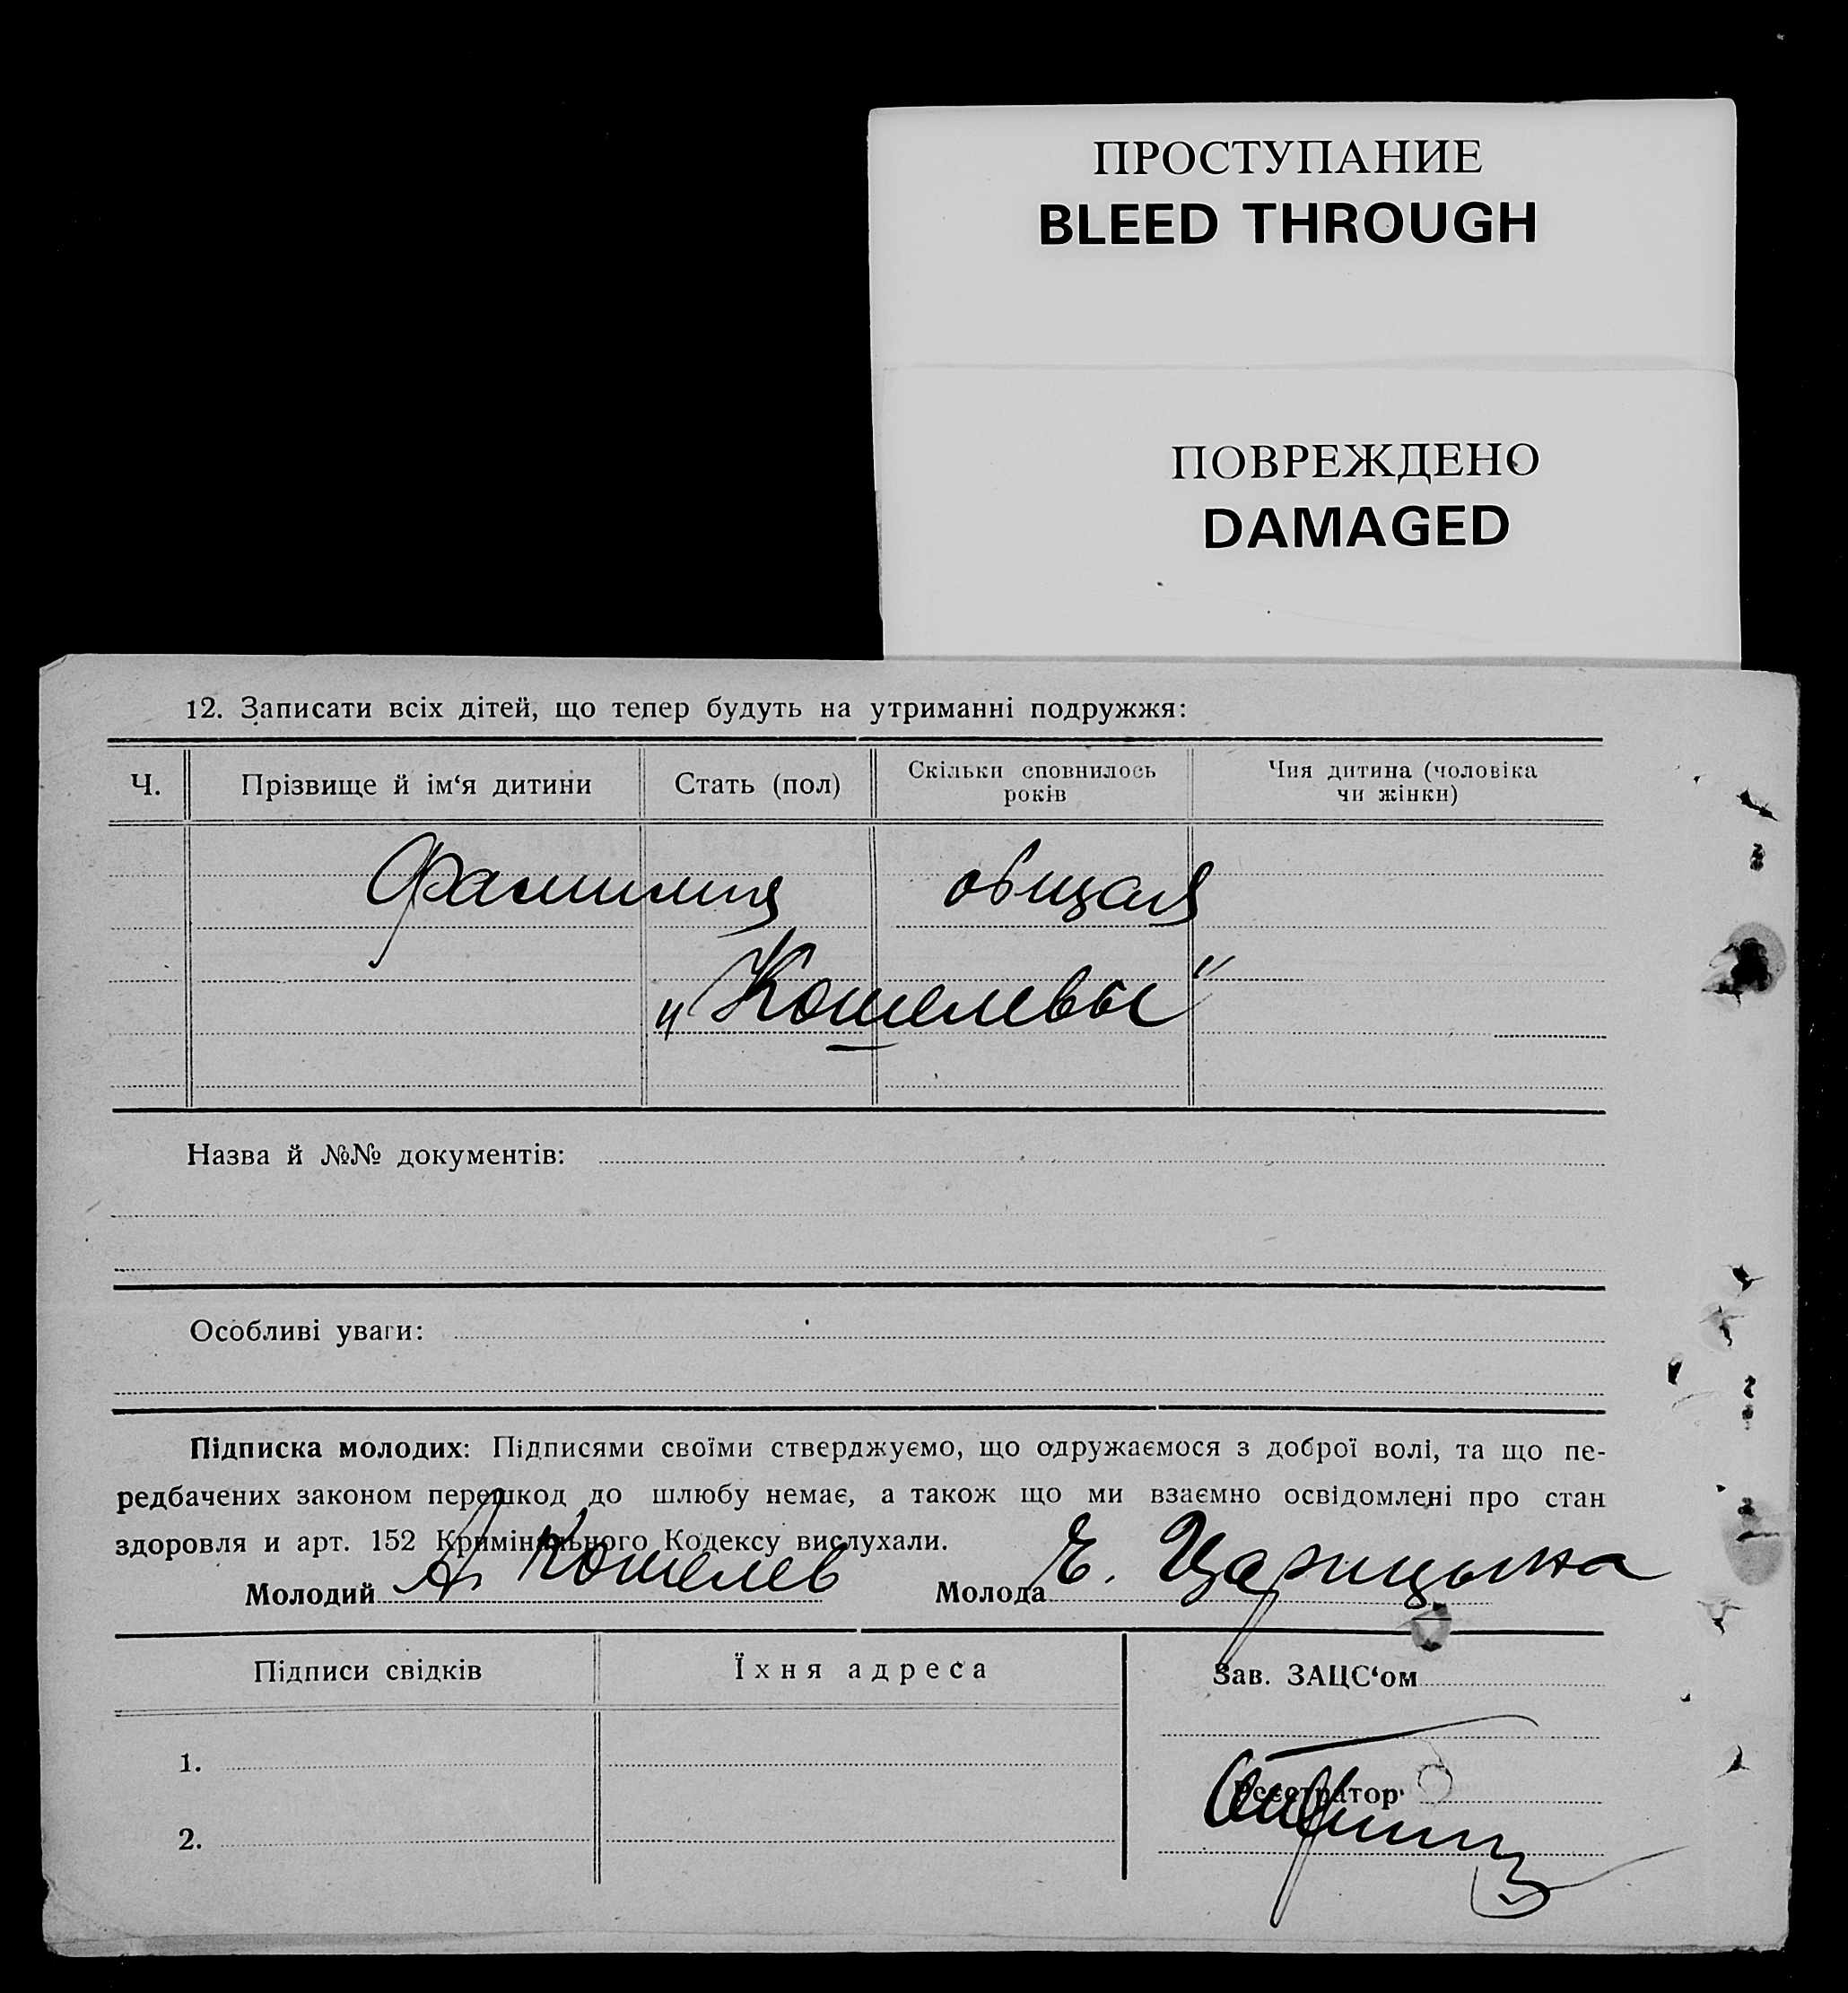 ПРОСТУПАНИЕ
BLEED THROUGH
ПОВРЕЖДЕНО
DAMAGED
12. Записати всіх дітей, що тепер будуть на утриманні подружжя:
Ч. Прізвище й ім‘я дитини Стать (пол) Скільки сповнилось років Чия дитина (чоловіка чи жінки)
Фамилия общая
„Кошелевы“
Назва й №№ документів:
Особливі уваги:
Підписка молодих: Підписями своїми стверджуємо, що одружаємося з доброї волі, та що пе-
редбачених законом перешкод до шлюбу немає, а також що ми взаємно освідомлені про стан
здоровля и арт. 152 Кримінального Кодексу вислухали.
Молодий А. Кошелев Молода Е. Царицына
Підписи свідків Їхня адреса Зав. ЗАЦС‘ом
1.
Реєстратор
2.